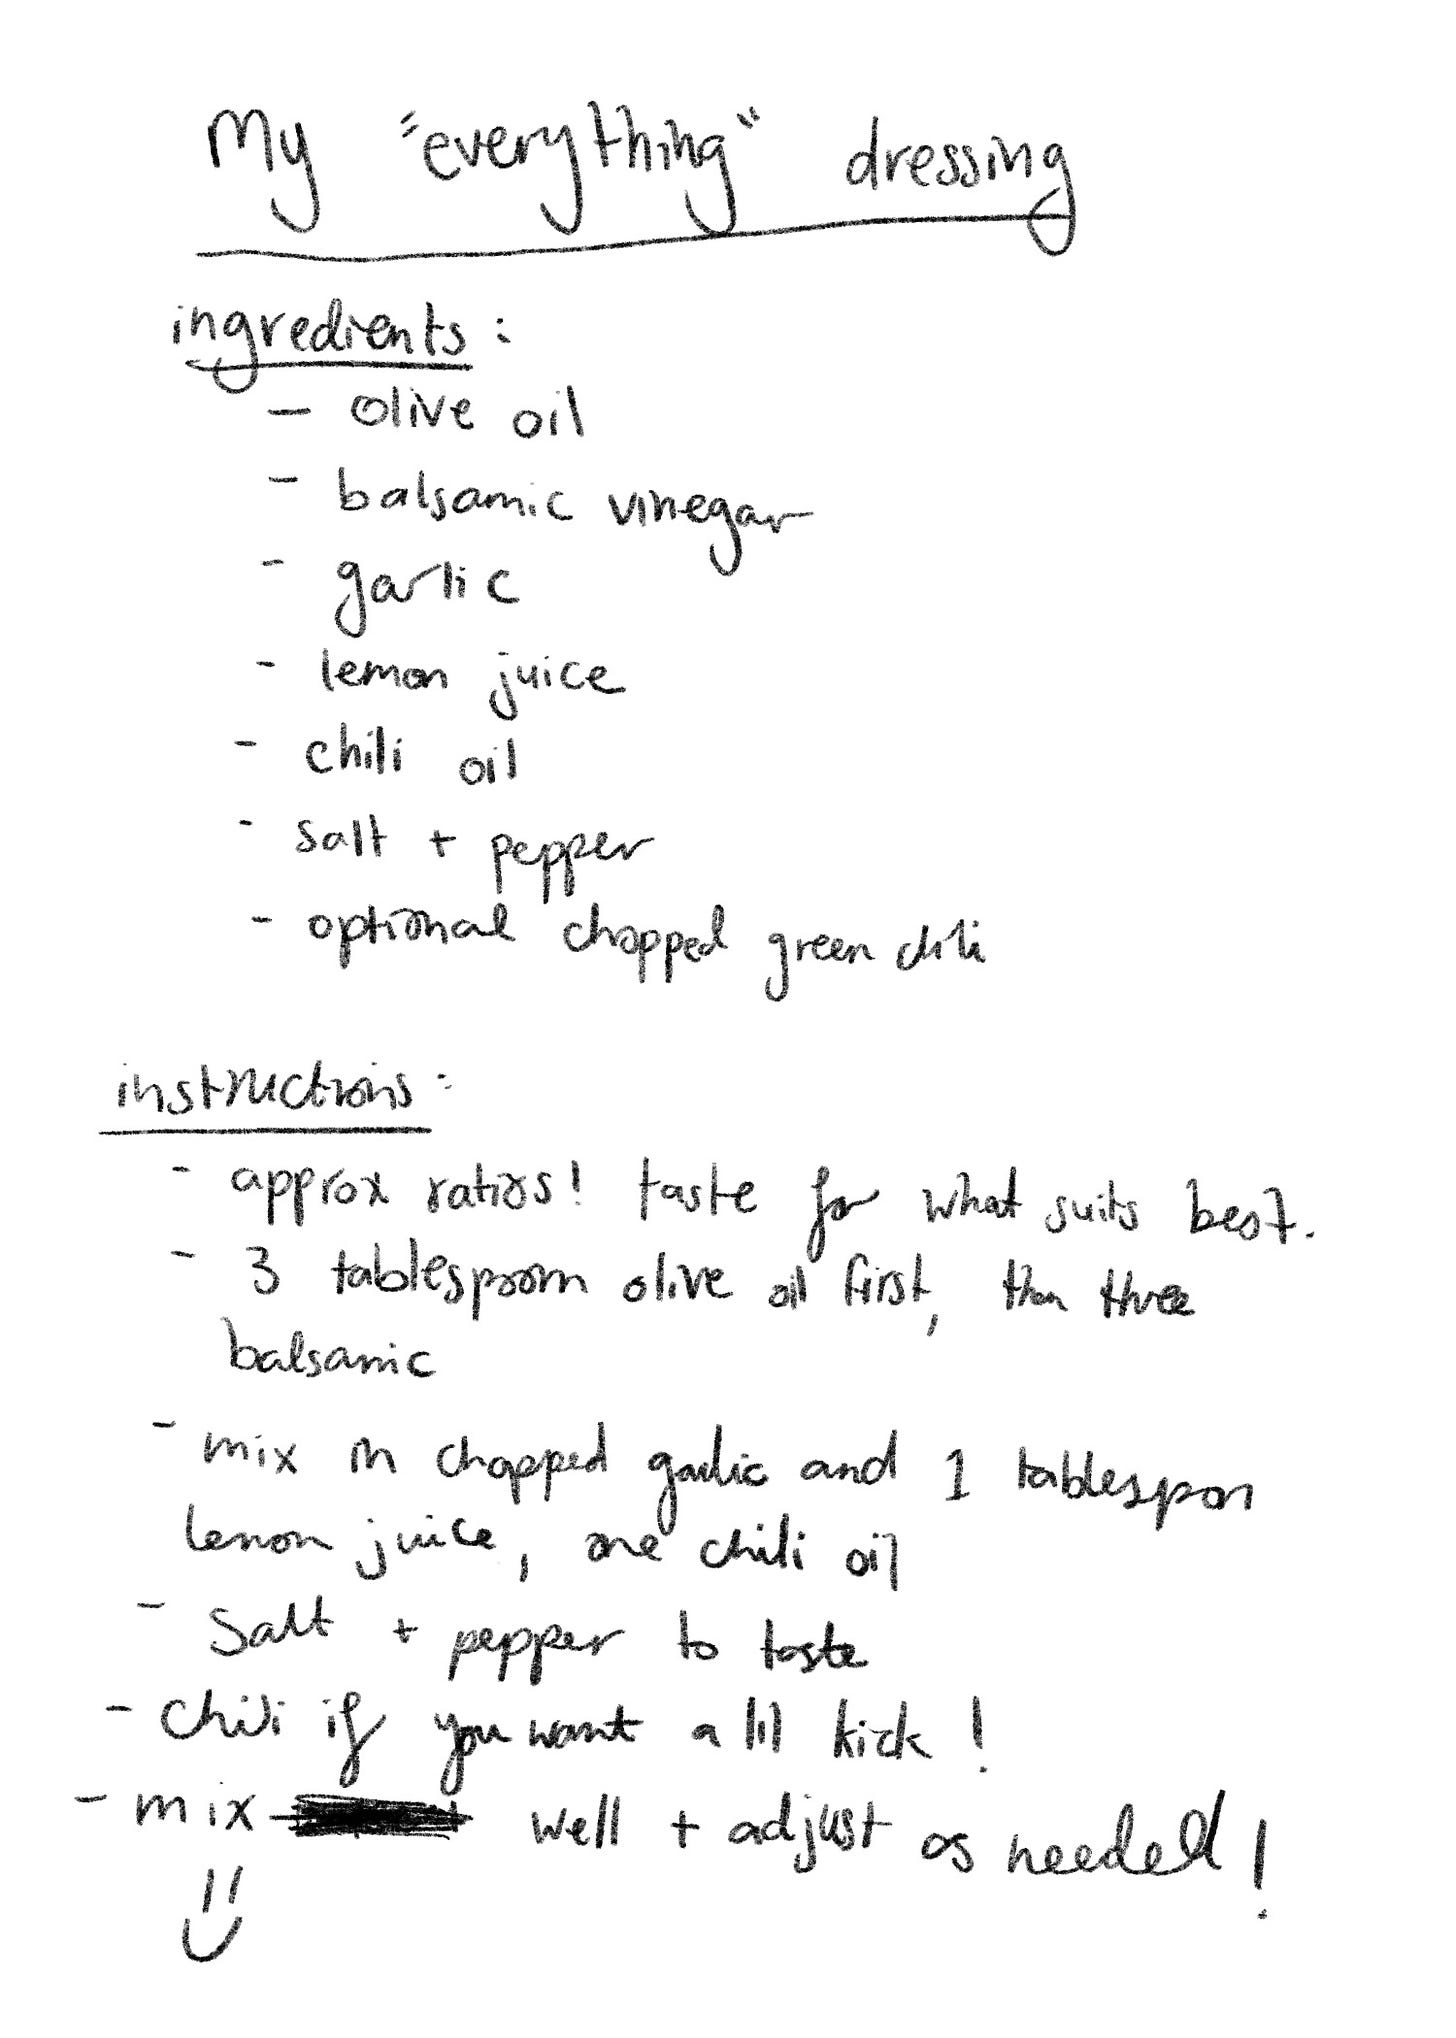 My "everything" dressing
ingredients:
- olive oil
- balsamic vinegar
- garlic
- lemon juice
- chili oil
- salt + pepper
- optional chopped green chili
instructions:
- approx ratios! taste for what suits best.
- 3 tablespoon olive oil first, then three
balsamic
- mix in chopped garlic and 1 tablespoon
lemon juice, one chili oil
- Salt + pepper to taste
- Chili if you want a lil kick!
- mix well + adjust as needed!